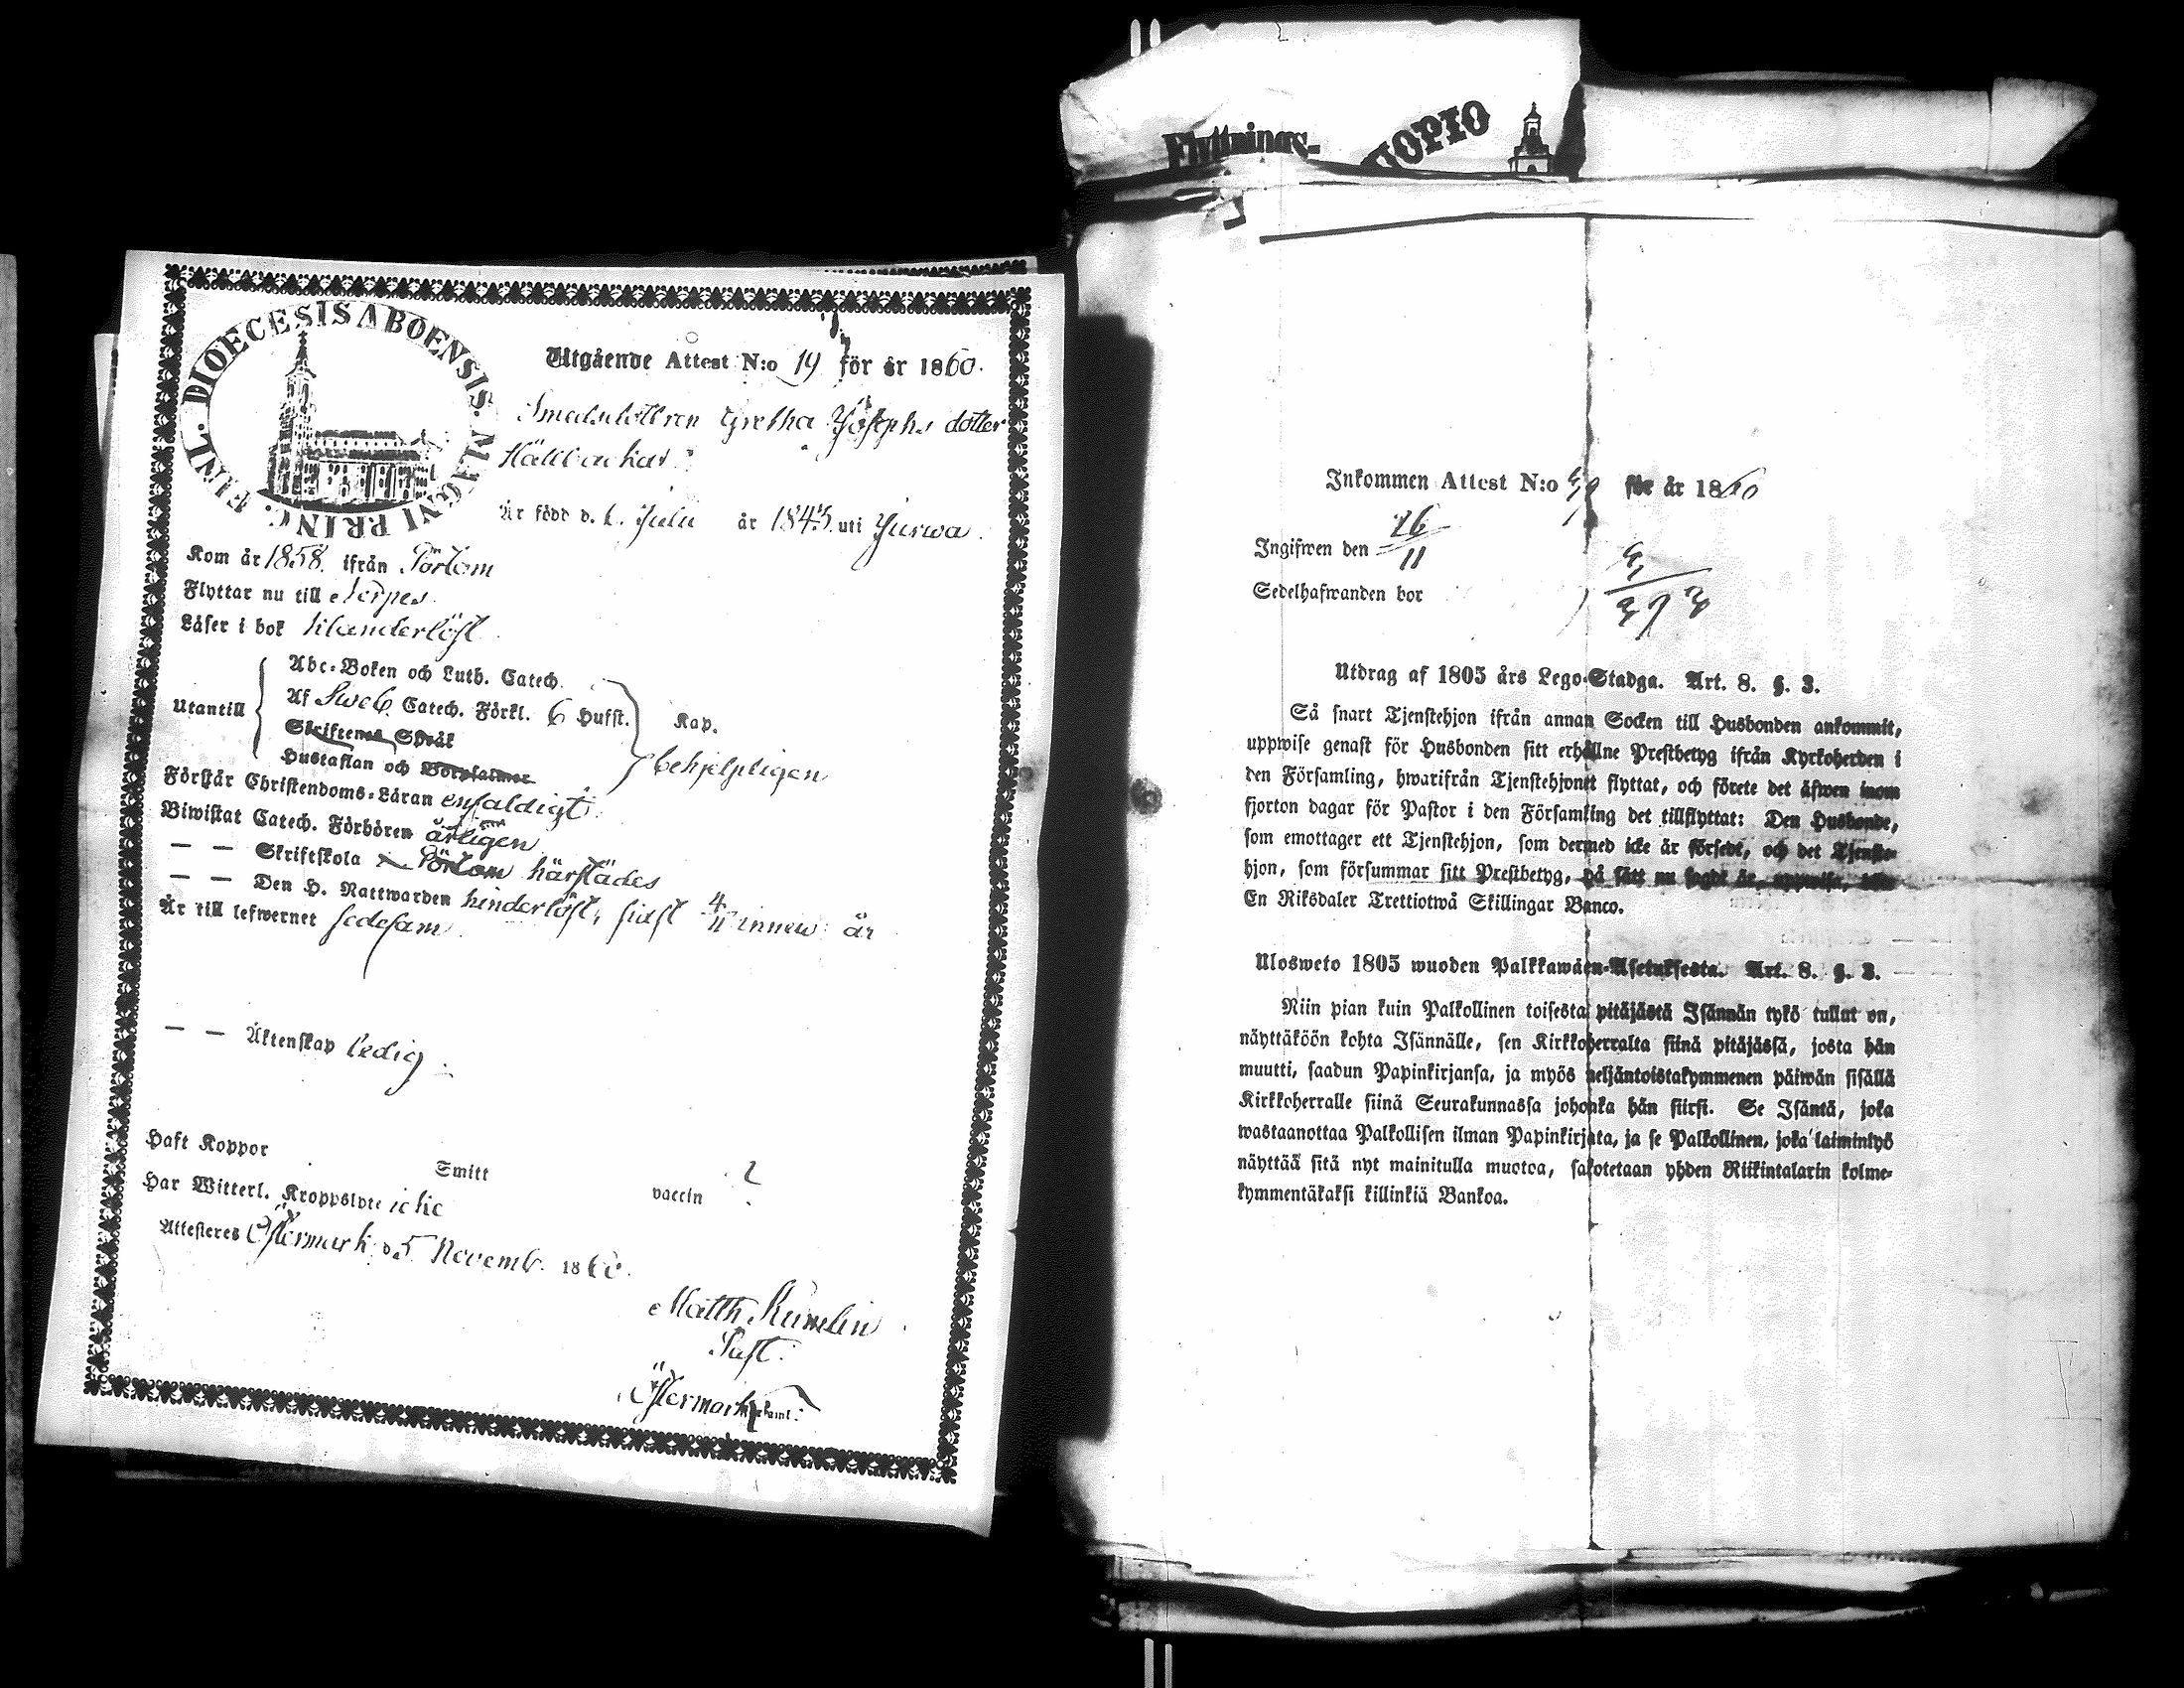 FINL. DIOECESIS ABOENSIS. MAGNI PRINC.
Utgående Attest N:o 19 för år 1860.
Smedsdottren Gretha Josephs dotter
Hällbackar
Är född d. 6. Julii år 1843. uti Jurwa.
Kom år 1858. ifrån Pörtom
Flyttar nu till Nerpes.
Läser i bok hinderlöst
Utantill
Abc-Boken och Luth. Catech.
Af Sweb. Catech. Förkl. 6 Hufst.
Skriftenes Språk
Hustaflan och Botpsalmer
Kap.
behjelpligen
Förstår Christendoms-Läran enfaldigt
Biwistat Catech. Förhören årligen
— — Skriftskola i Pörtom härstädes
— — Den H. Nattwarden hinderlöst, sidst 4/11 innew: år
Är till lefwernet sedesam
— — Äktenskap ledig.
Haft Koppor
Smitt
vaccin ?
Har Witterl. Kroppslyte icke
Attesteres Östermark d. 5 Novemb. 1860.
Matth. Kumlin
Past.
Östermark
Flyttnings-
UOPIO
Inkommen Attest N:o för år 1860
Ingifwen den 26/11
Sedelhafwanden bor
Utdrag af 1805 års Lego-Stadga. Art. 8. §. 3.
Så snart Tjenstehjon ifrån annan Socken till Husbonden ankommit,
uppwise genast för Husbonden sitt erhållne Prestbetyg ifrån Kyrkoherden i
den Församling, hwarifrån Tjenstehjonet flyttat, och förete det äfwen inom
fjorton dagar för Pastor i den Församling det tillflyttat: Den Husbonde,
som emottager ett Tjenstehjon, som dermed icke är försedt, och det Tjenste-
hjon, som försummar sitt Prestbetyg, på sätt nu sagdt är, uppwisa, böte
En Riksdaler Trettiotwå Skillingar Banco.
Ulosweto 1805 wuoden Palkkawäen-Asetuksesta. Art. 8. §. 3.
Niin pian kuin Palkollinen toisesta pitäjästä Isännän tykö tullut on,
näyttäköön kohta Isännälle, sen Kirkkoherralta siinä pitäjässä, josta hän
muutti, saadun Papinkirjansa, ja myös neljäntoistakymmenen päiwän sisällä
Kirkkoherralle siinä Seurakunnassa johonka hän siirsi. Se Isäntä, joka
wastaanottaa Palkollisen ilman Papinkirjata, ja se Palkollinen, joka laiminlyö
näyttää sitä nyt mainitulla muotoa, sakotetaan yhden Riikintalarin kolme-
kymmentäkaksi killinkiä Bankoa.